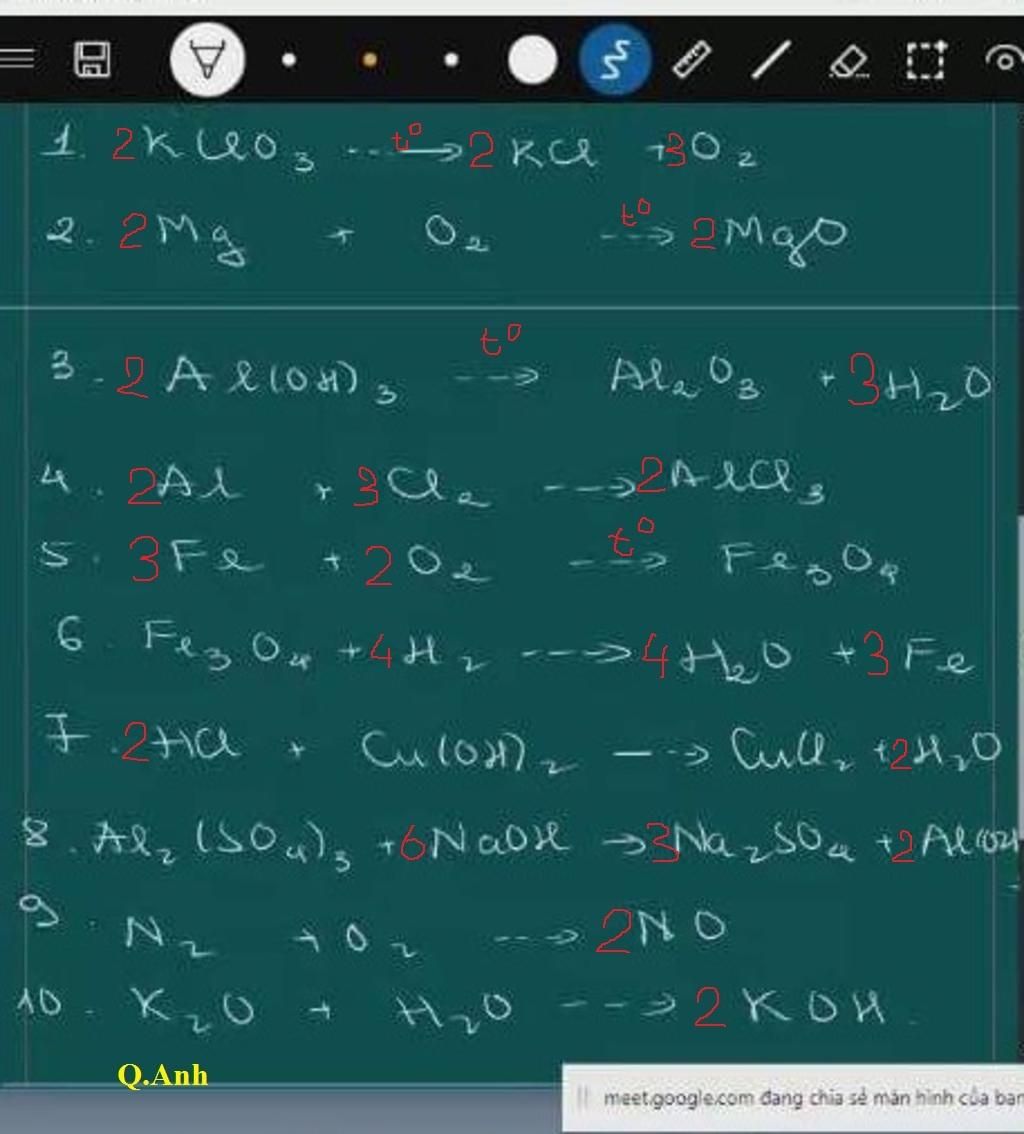 1. 2KClO3 ---t°--> 2KCl + 3O2
2. 2Mg + O2 --t°-> 2MgO
3. 2Al(OH)3 --t°-> Al2O3 + 3H2O
4. 2Al + 3Cl2 ---> 2AlCl3
5. 3Fe + 2O2 --t°-> Fe3O4
6. Fe3O4 + 4H2 ---> 4H2O + 3Fe
7. 2HCl + Cu(OH)2 ---> CuCl2 + 2H2O
8. Al2(SO4)3 + 6NaOH -> 3Na2SO4 + 2Al(OH
9. N2 + O2 ---> 2NO
10. K2O + H2O ---> 2KOH.
Q.Anh
meet.google.com đang chia sẻ màn hình của bạn